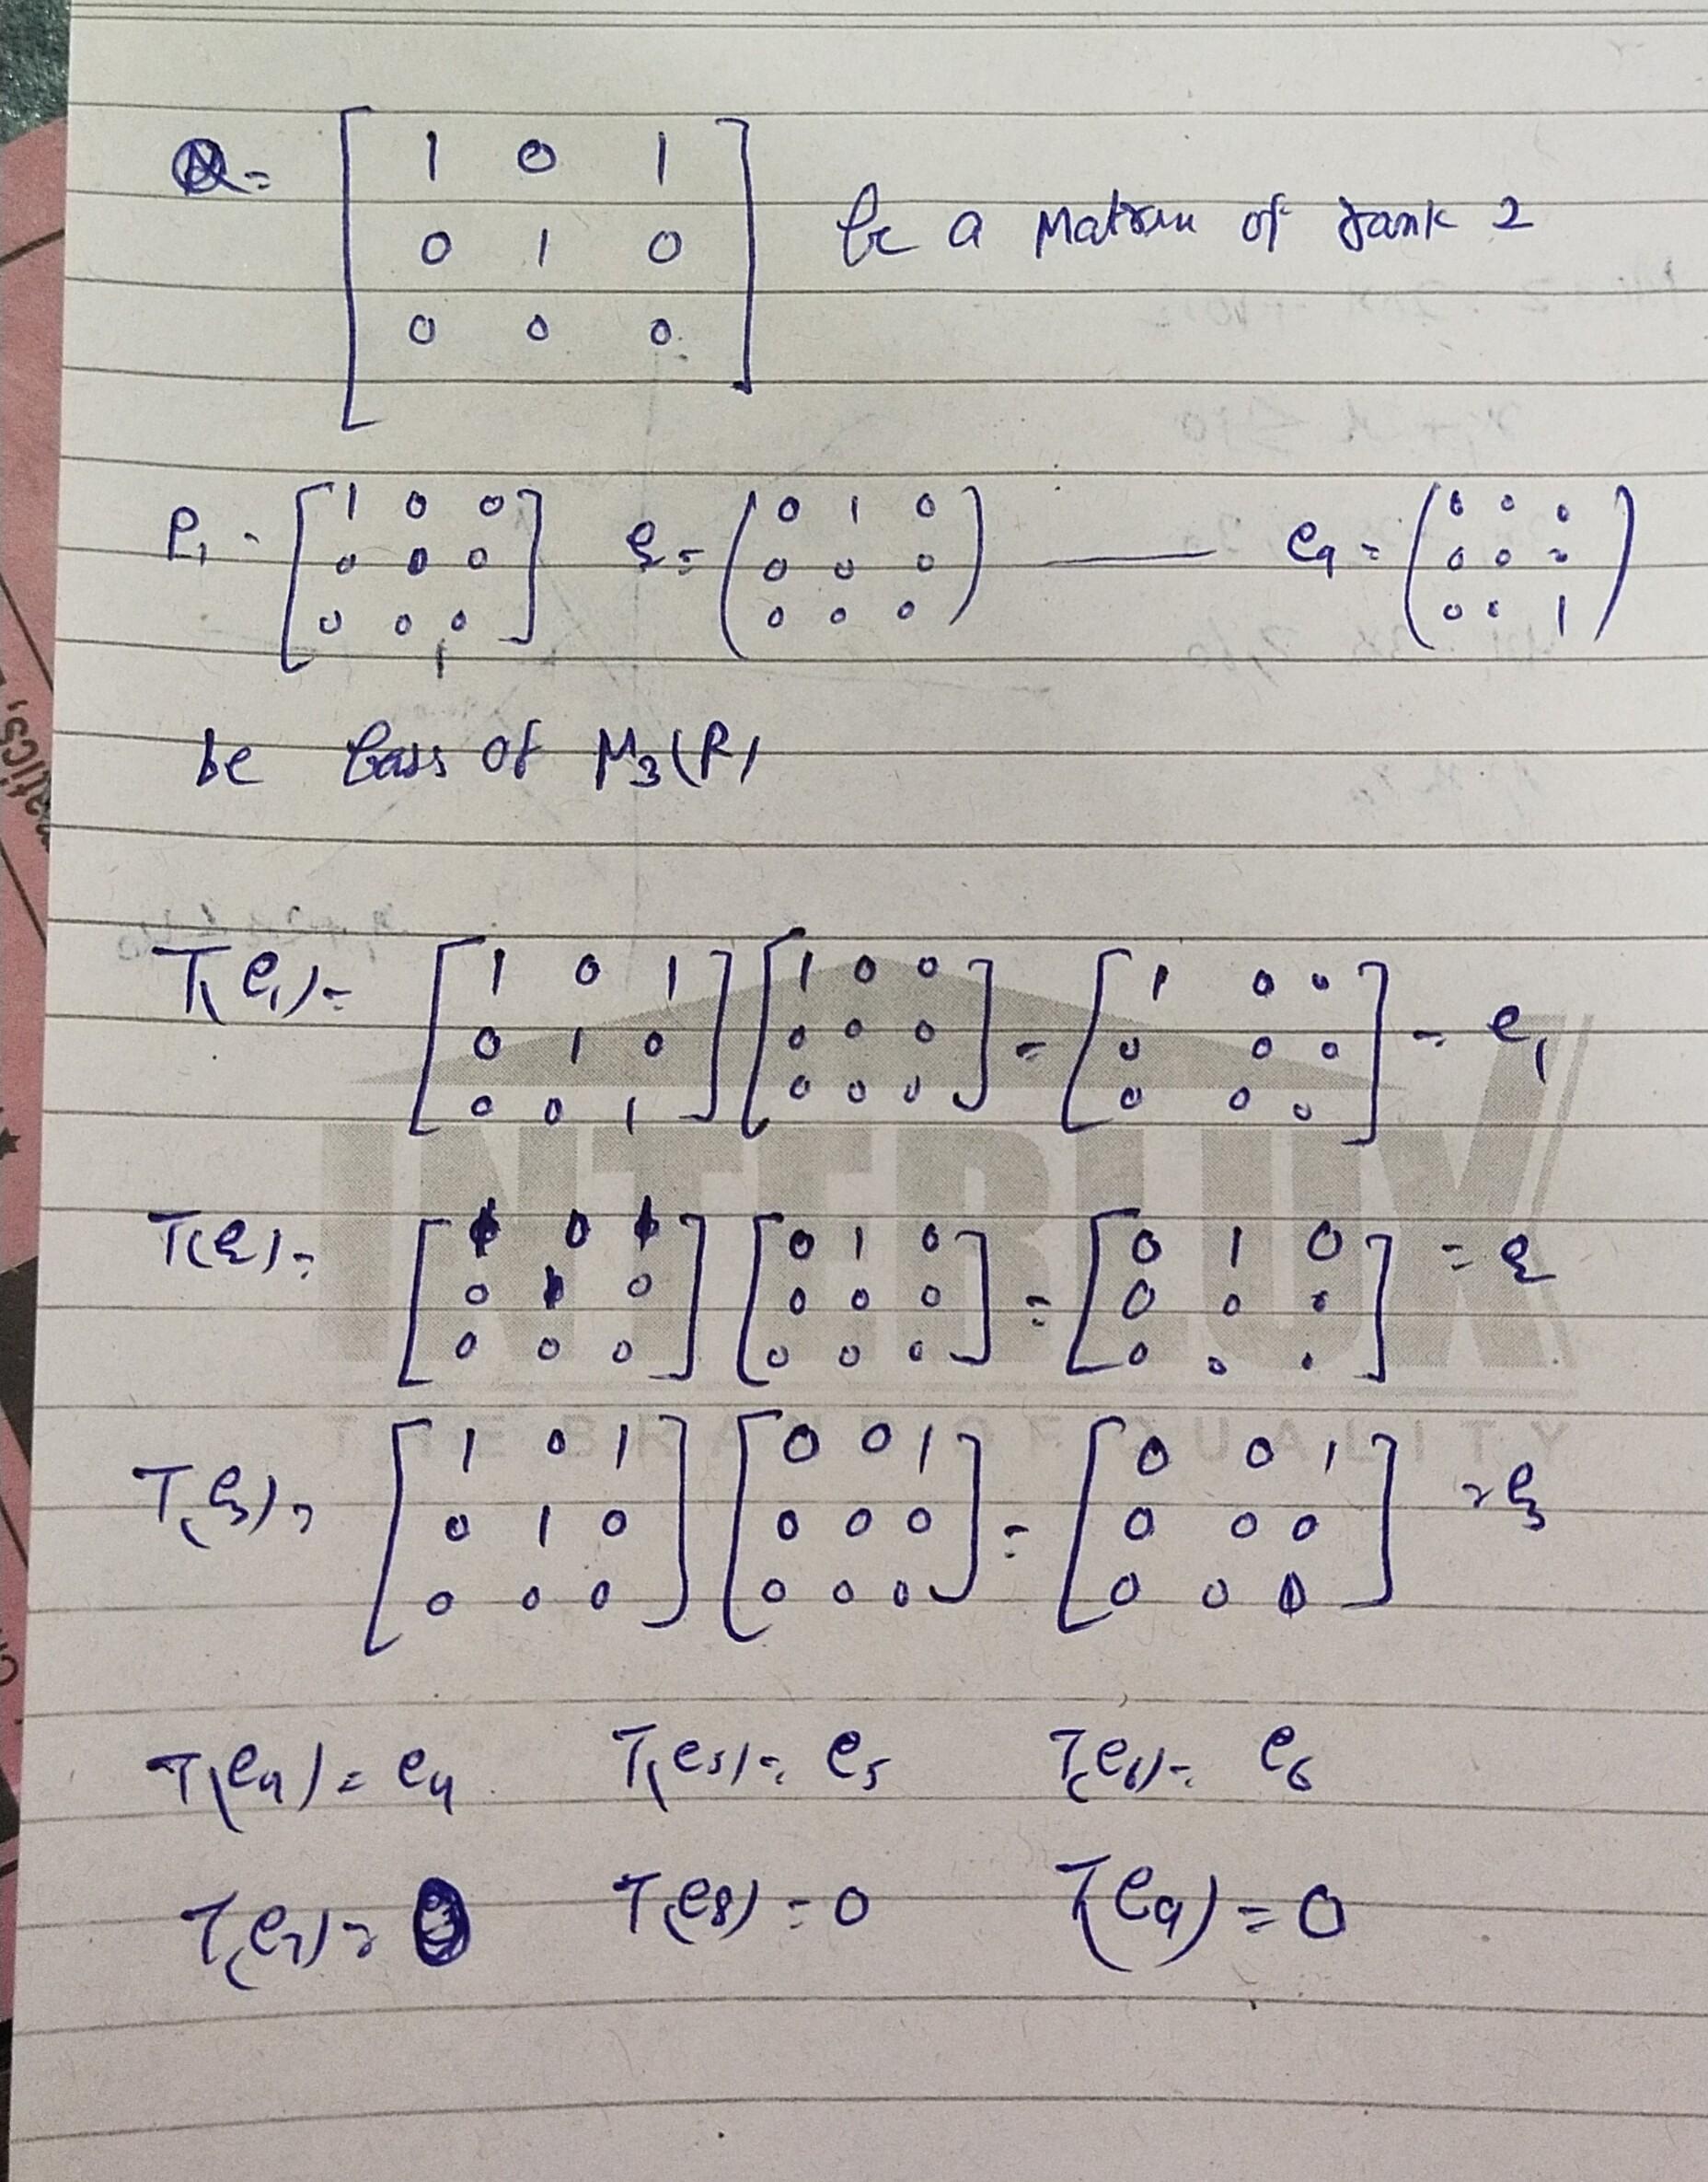 Q = [ 1 0 1
0 1 0
0 0 0 ] be a Matrix of rank 2
e₁ = [ 1 0 0
0 0 0
0 0 0 ] e₂ = ( 0 1 0
0 0 0
0 0 0 ) — e₉ = ( 0 0 0
0 0 0
0 0 1 )
be basis of M₃(R)
T(e₁) = [ 1 0 1
0 1 0
0 0 1 ] [ 1 0 0
0 0 0
0 0 0 ] = [ 1 0 0
0 0 0
0 0 0 ] = e₁
T(e₂) = [ 1 0 1
0 1 0
0 0 0 ] [ 0 1 0
0 0 0
0 0 0 ] = [ 0 1 0
0 0 0
0 0 0 ] = e₂
T(e₃) = [ 1 0 1
0 1 0
0 0 0 ] [ 0 0 1
0 0 0
0 0 0 ] = [ 0 0 1
0 0 0
0 0 0 ] = e₃
T(e₄) = e₄ T(e₅) = e₅ T(e₆) = e₆
T(e₇) = 0 T(e₈) = 0 T(e₉) = 0
INTERLUX